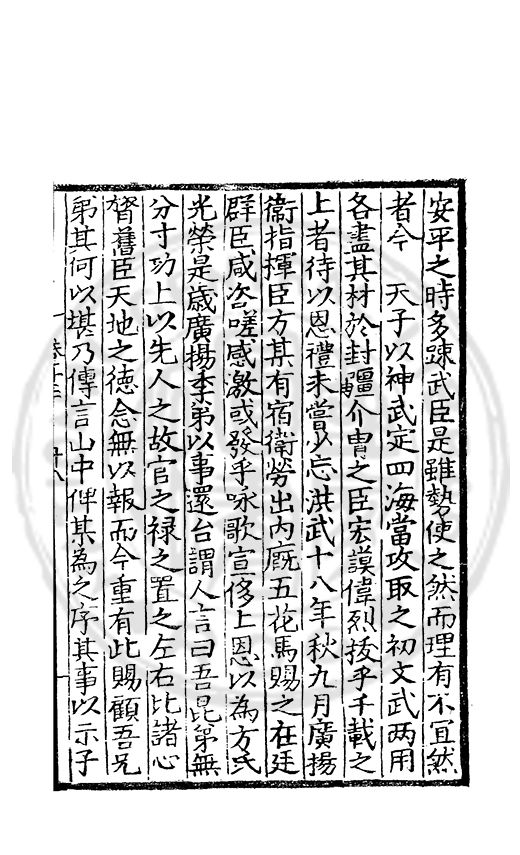 安平之時多踈武臣是雖勢使之然而理有不冝然
者今　天子以神武定四海當攻取之初文武两用
各盡其材於封疆介胄之臣宏謨偉烈拔乎千載之
上者待以恩禮未嘗少忘洪武十八年秋九月廣揚
衞指揮臣方某有宿衛勞出内廐五花馬賜之在廷
群臣咸咨嗟感激或發乎咏歌宣侈上恩以為方氏
光榮是歲廣揚季弟以事還台謂人言曰吾昆弟無
分寸功上以先人之故官之禄之置之左右比諸心
膂舊臣天地之徳念無以報而今重有此賜顧吾兄
弟其何以堪乃傳言山中俾某為之序其事以示子